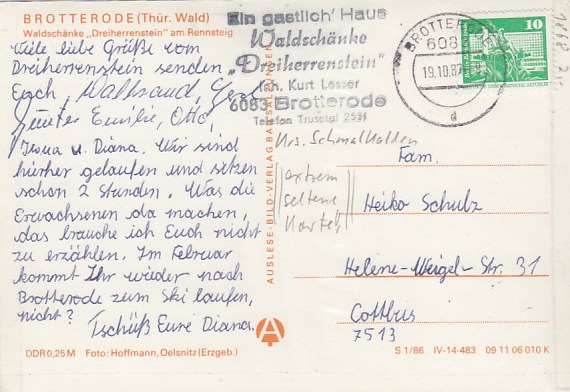 BROTTERODE (Thür. Wald)
Waldschänke „Dreiherrenstein" am Rennsteig
Viele liebe Grüße vom
Dreiherrenstein senden
Euch, Waltraud,
Günter, Emilie, Otto,
Jesua u. Diana. Wir sind
hierher gelaufen und sitzen
schon 2 Stunden. Was die
Erwachsenen da machen,
das brauche ich Euch nicht
zu erzählen. Im Februar
kommt Ihr wieder nach
Brotterode zum Ski laufen,
nicht?
Tschüß Eure Diana.
DDR 0,25 M Foto: Hoffmann, Oelsnitz (Erzgeb.)
AUSLESE-BILD-VERLAG BAD SALZUNGEN
Ein gastlich' Haus
Waldschänke
„Dreiherrenstein"
Inh. Kurt Lesser
6083 Brotterode
Telefon Trusetal 2531
BROTTERODE
608
19.10.87
d
10
Krs. Schmalkalden
extrem
seltene
Karte!!
Fam.
Heiko Schulz
Helene-Weigel-Str. 31
Cottbus
7513
S 1/86 IV-14-483 09 11 06 010 K